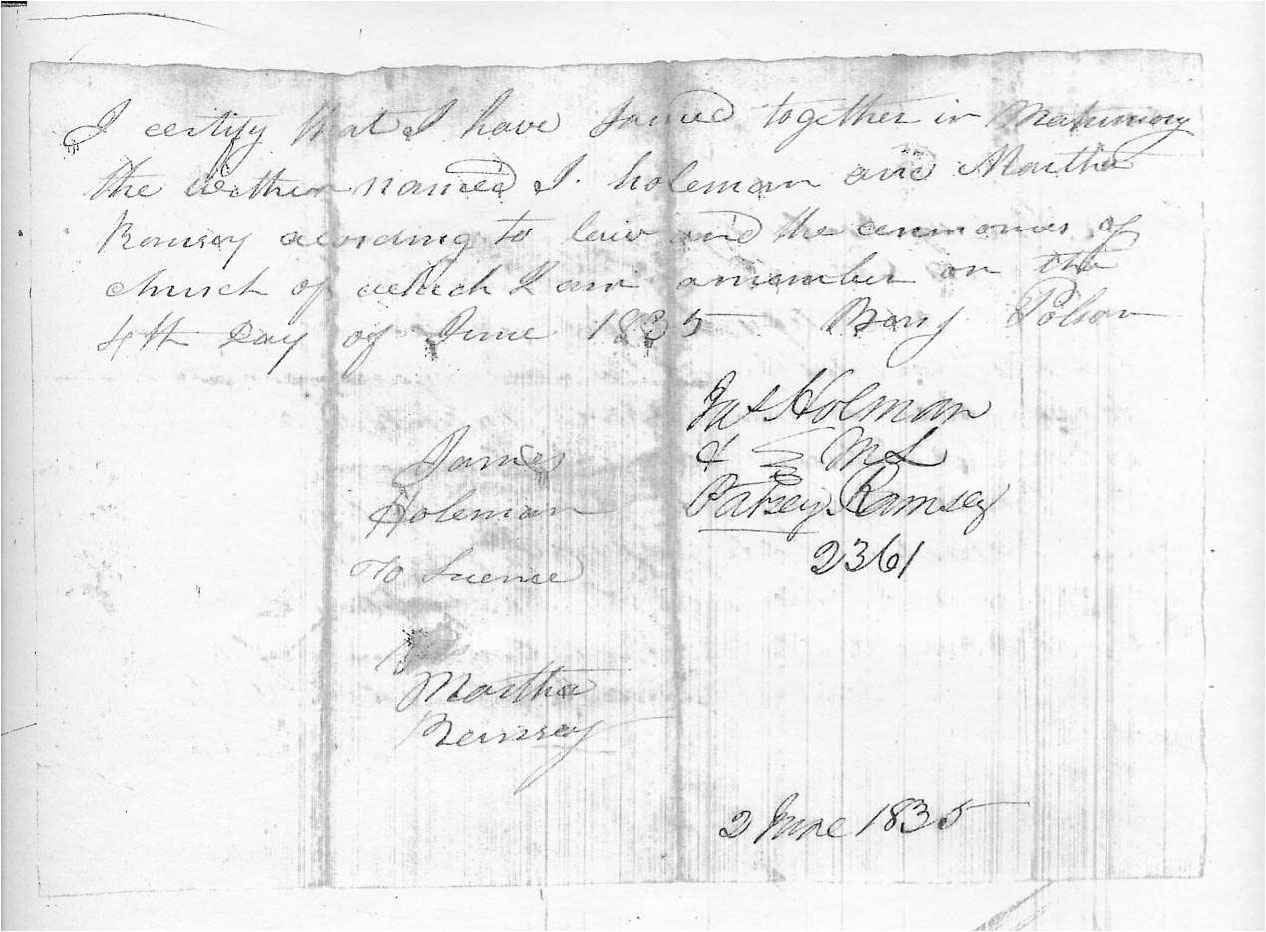 I certify that I have Joined together in Matrimony
the within named J. holeman and Martha
Ramsey acording to law and the ceremonies of
church of which I am a member on the
4th Day of June 1835 Benj Polson
Jas Holman
& ML
Patsey Ramsey
2361
James
Holeman
To Licence
Martha
Remsey
2 June 1835